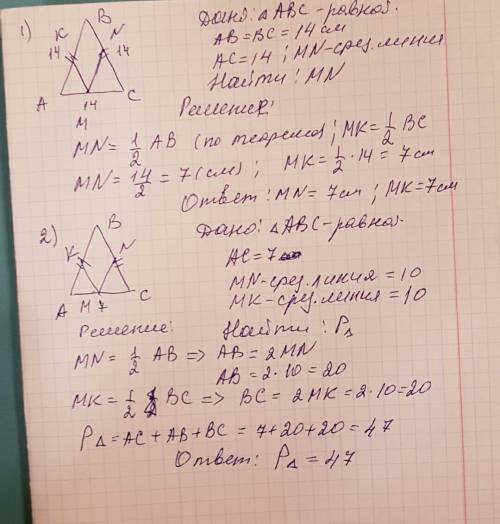 1) B Дано: △ABC-равноб.
K N AB=BC=14см
14 14 AC=14; MN-сред.линия
A 14 C Найти: MN
M Решение:
MN= 1/2 AB (по теореме); MK= 1/2 BC
MN= 14/2 = 7(см); MK= 1/2·14= 7см
Ответ: MN= 7см; MK=7см
2) B Дано: △ABC-равноб.
K N AC=7
A M 7 C MN-сред.линия=10
MK-сред.линия=10
Решение: Найти: P△
MN= 1/2 AB => AB=2MN
AB=2·10=20
MK= 1/2 BC => BC= 2MK=2·10=20
P△=AC+AB+BC=7+20+20=47
Ответ: P△=47